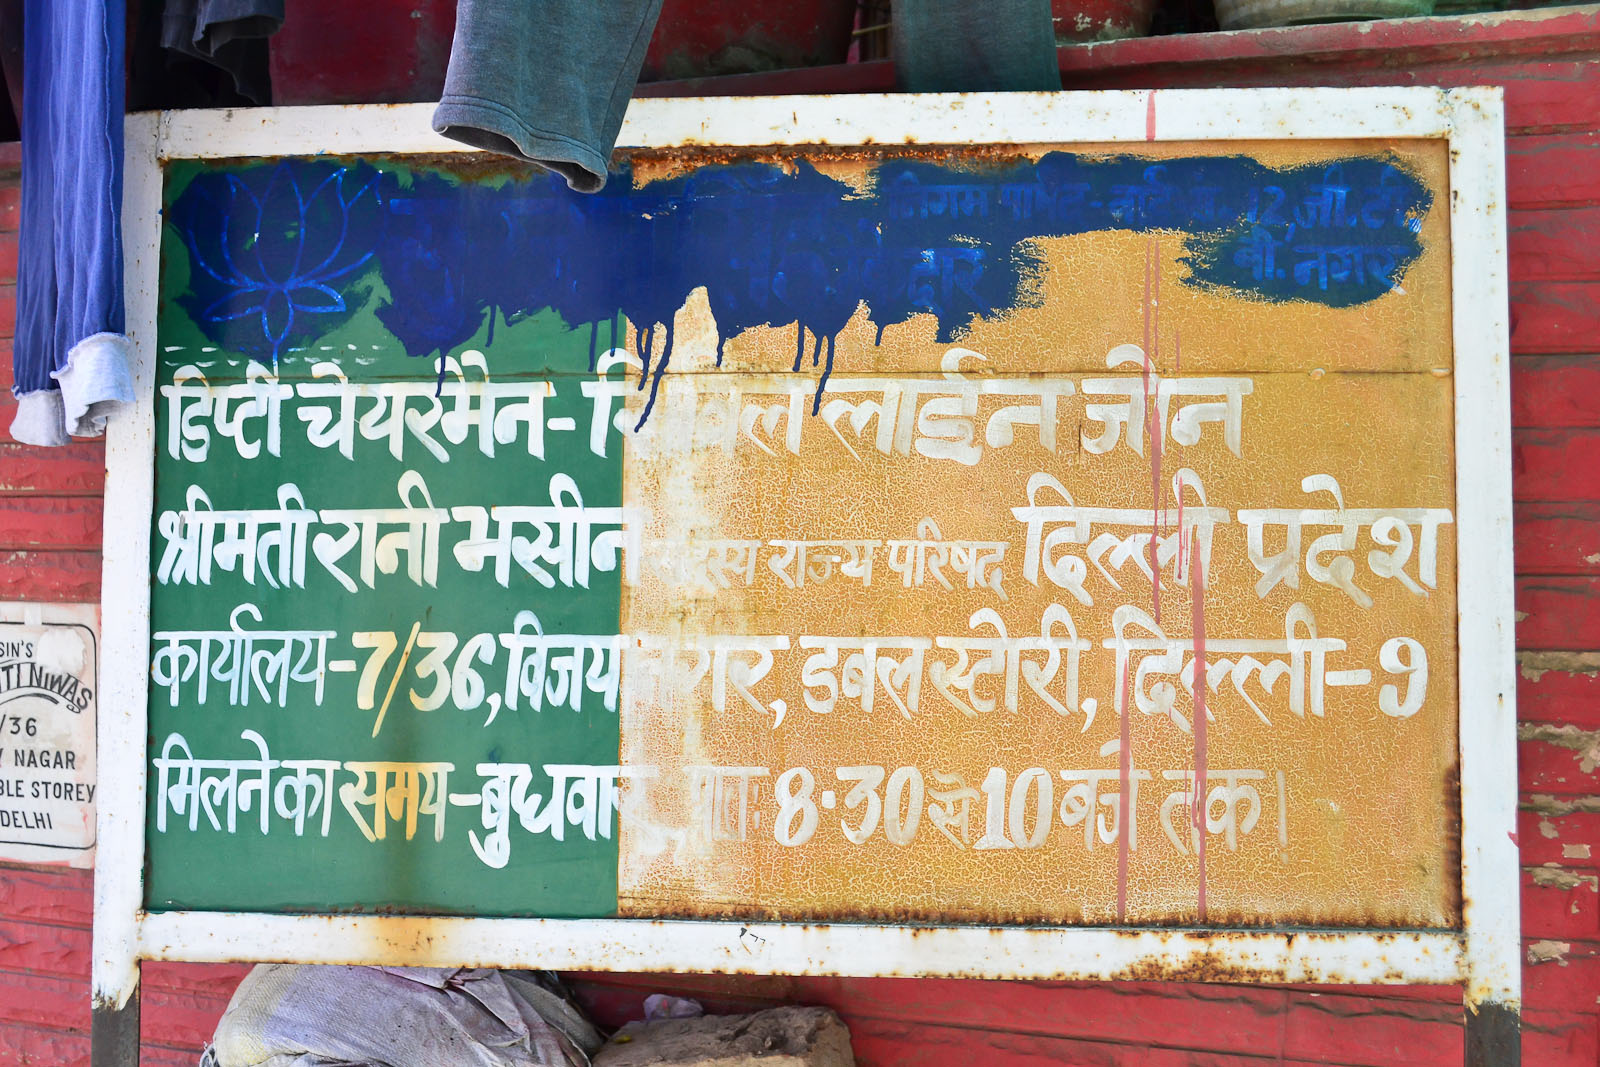 निगम पार्षद-वार्ड नं. 12, जी.टी.
बी. नगर
डिप्टी चेयरमैन-सिविल लाईन जोन
श्रीमती रानी भसीन सदस्य राज्य परिषद दिल्ली प्रदेश
कार्यालय-7/36, विजय नगर, डबल स्टोरी, दिल्ली-9
मिलने का समय-बुधवार, प्रातः 8.30 से 10 बजे तक।
SIN'S
TI NIWAS
/36
Y NAGAR
BLE STOREY
DELHI